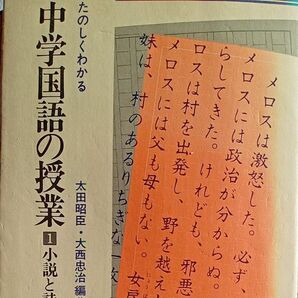 たのしくわかる
中学国語の授業
1小説と詩
太田昭臣・大西忠治編
メロスは激怒した。必ず、
メロスには政治が分からぬ。
らしてきた。けれども、邪悪
ロスは村を出発し、野を越え
メロスには父も母もない。女房
妹は、村のあるりちぎな一牧